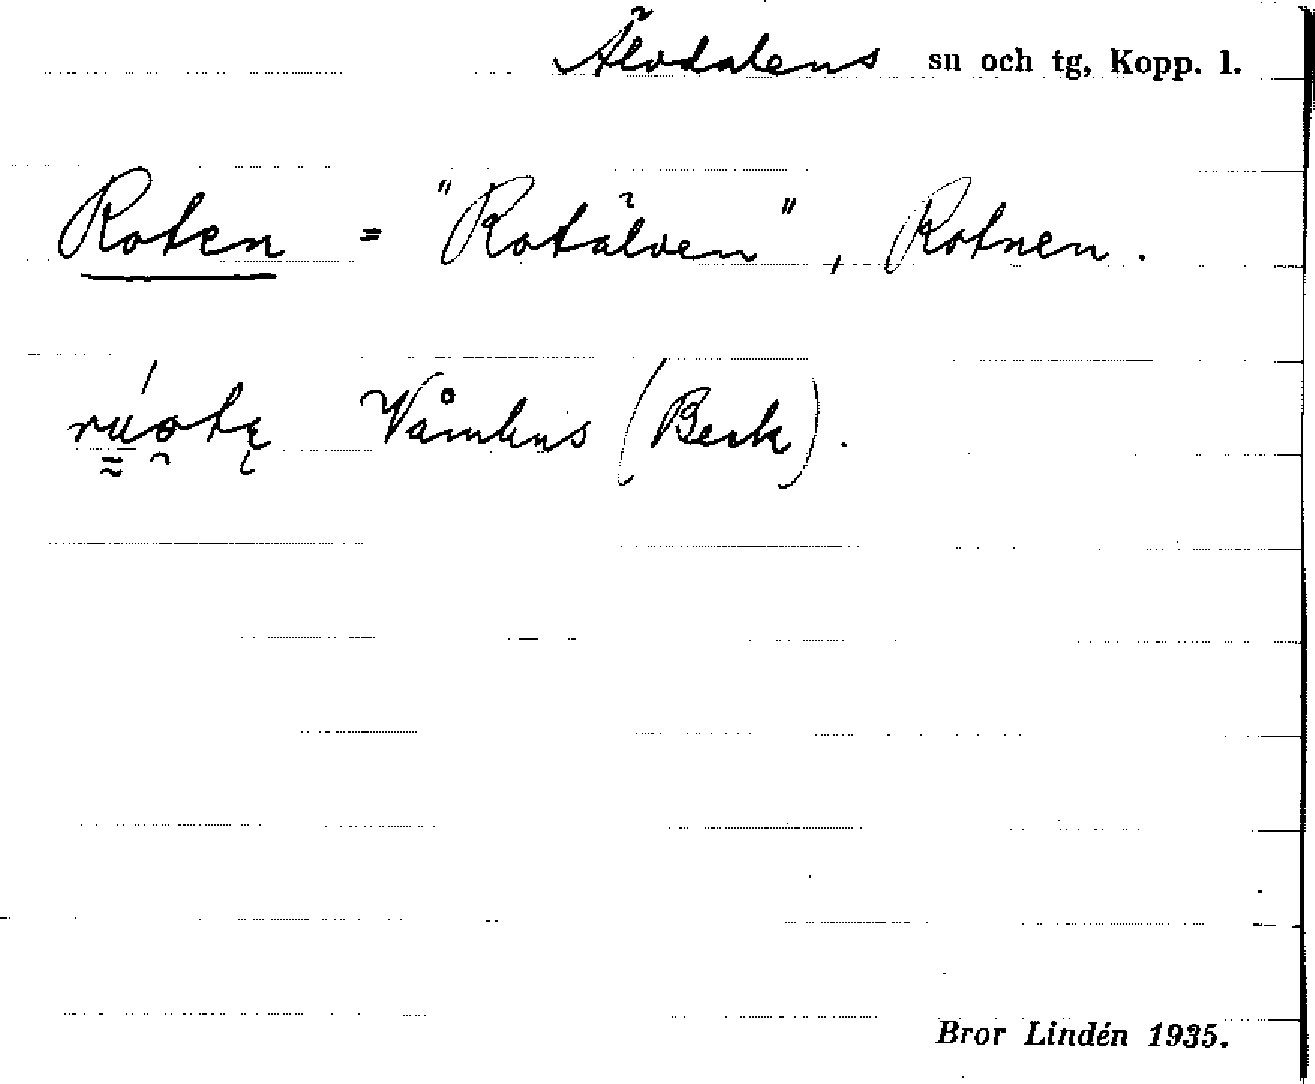 Älvdalens sn och tg, Kopp. l.
Roten = "Rotälven", Rotnen.
rúotę Våmhus (Beck).
Bror Lindén 1935.